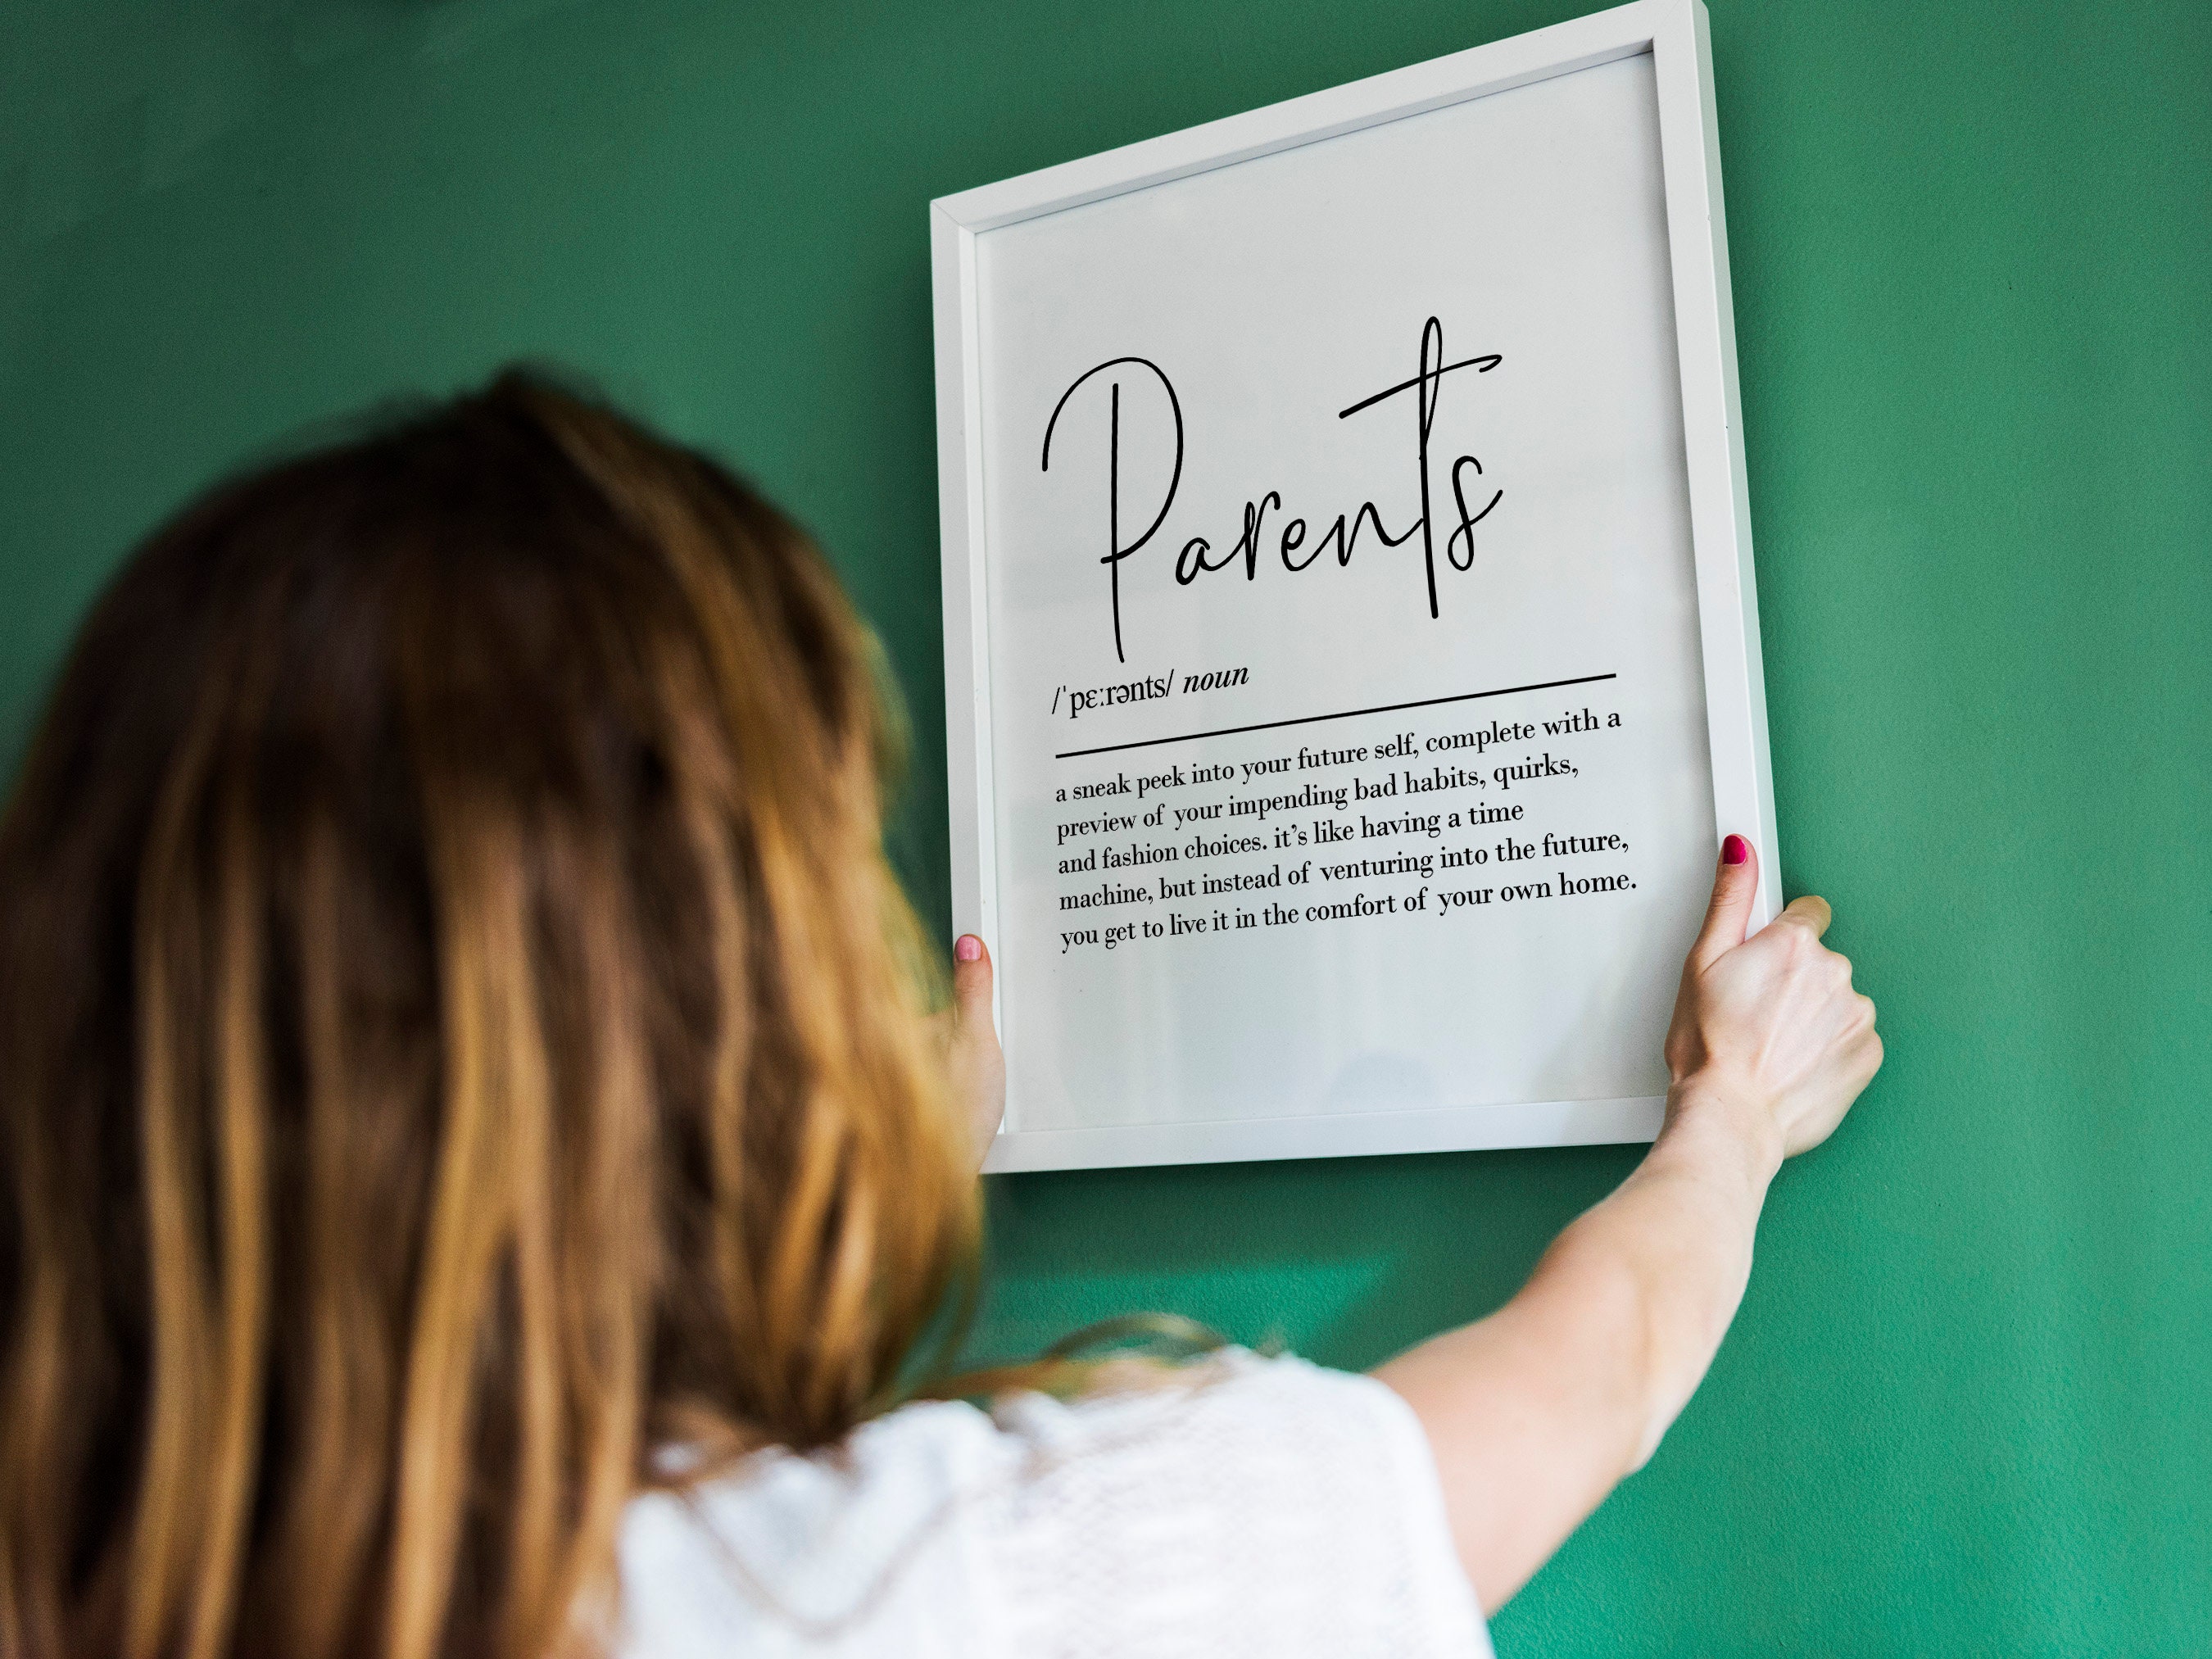 Parents
/ˈpɛːrənts/ noun
a sneak peek into your future self, complete with a
preview of your impending bad habits, quirks,
and fashion choices. it’s like having a time
machine, but instead of venturing into the future,
you get to live it in the comfort of your own home.